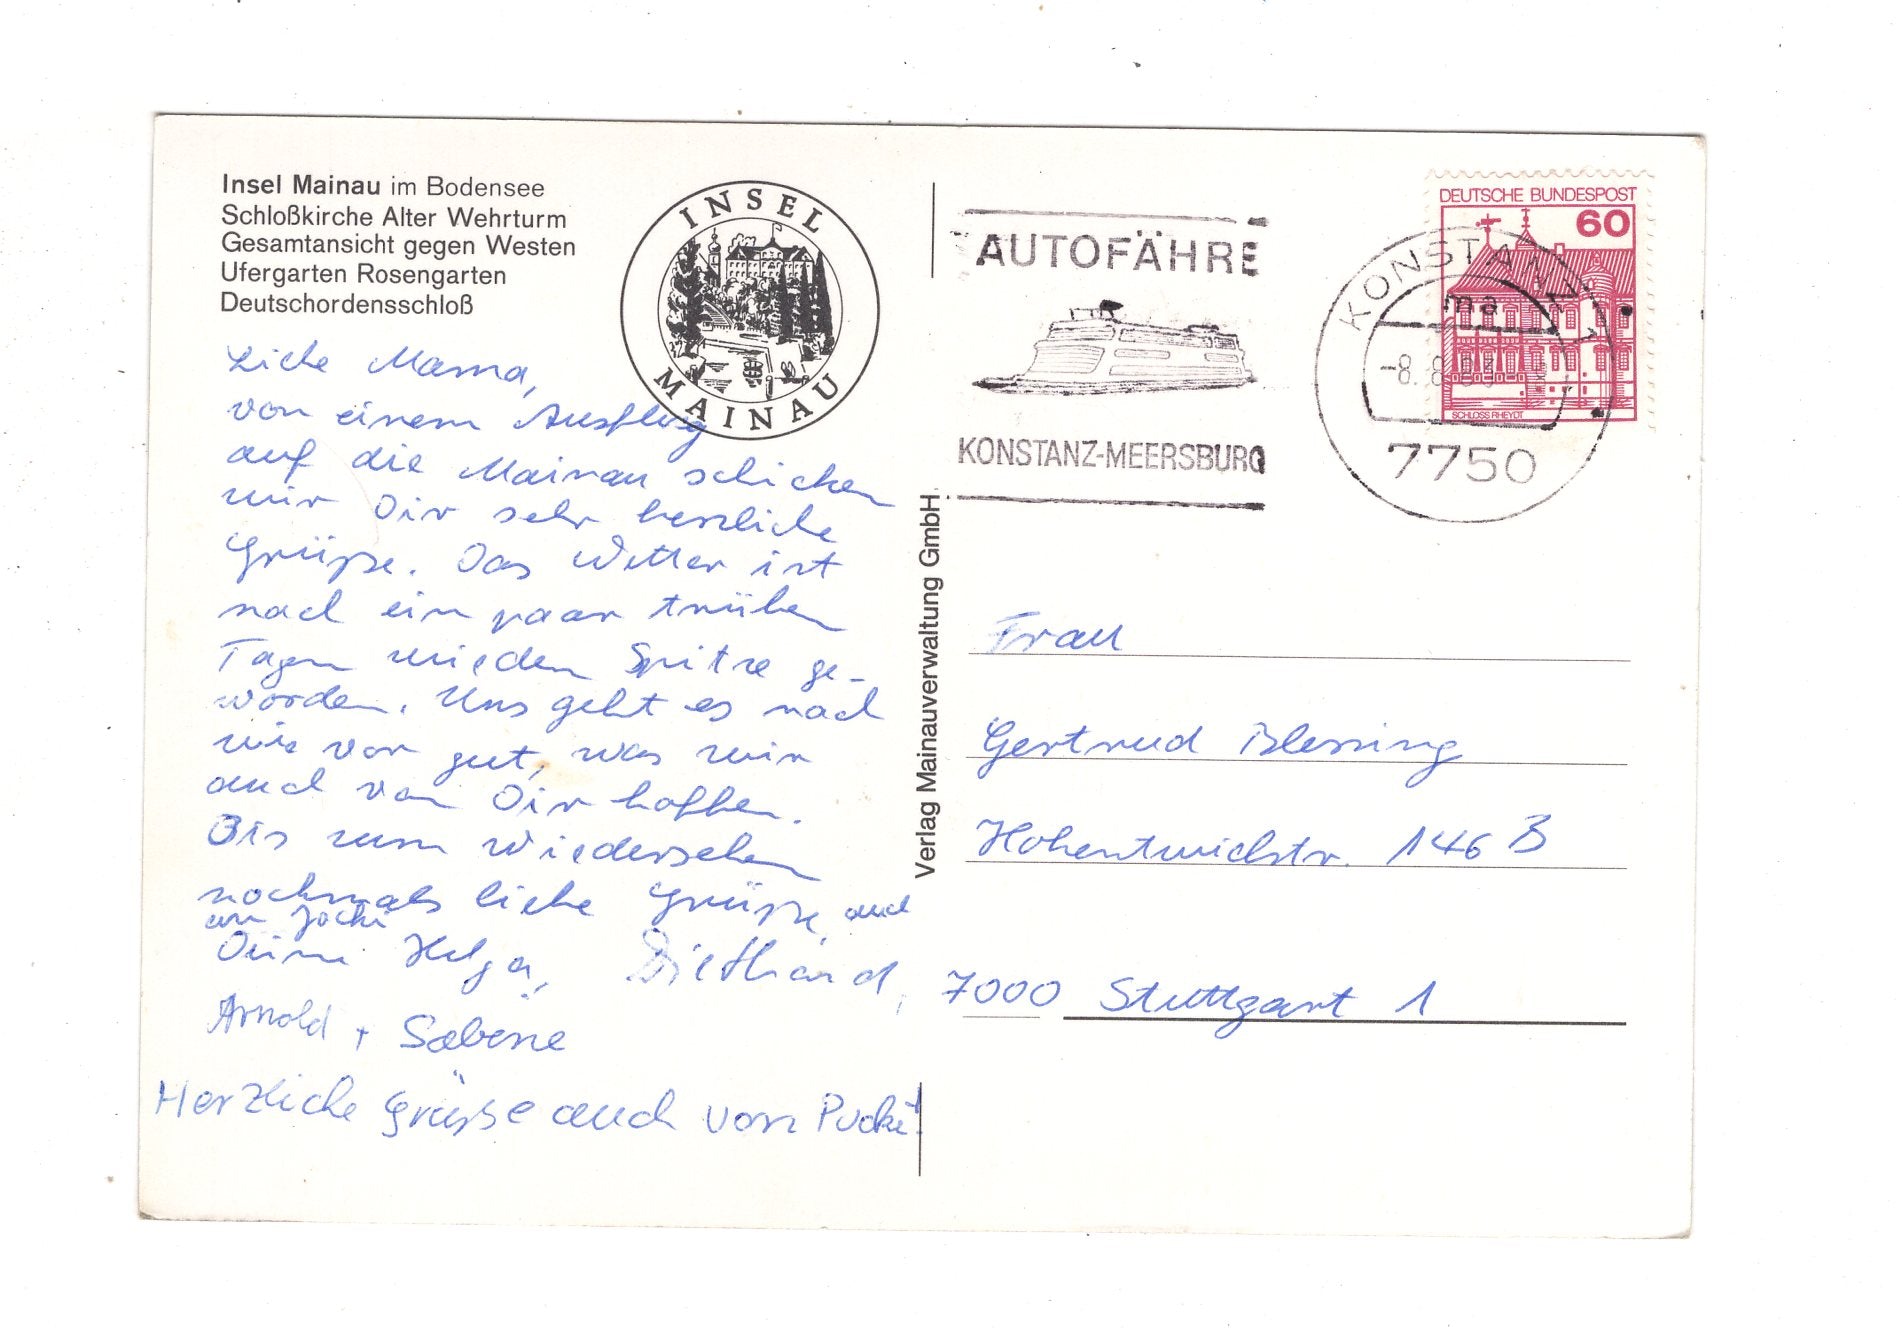 Insel Mainau im Bodensee
Schloßkirche Alter Wehrturm
Gesamtansicht gegen Westen
Ufergarten Rosengarten
Deutschordensschloß
INSEL
MAINAU
Liebe Mama,
von einem Ausflug
auf die Mainau schicken
wir Dir sehr herzliche
Grüße. Das Wetter ist
nach ein paar trüben
Tagen wieder Spitze ge-
worden. Uns geht es nach
wie vor gut, was wir
auch von Dir hoffen.
Bis zum Wiedersehen
nochmals liebe Grüße, auch
an Jocki
Deine Helga, Diethard,
Arnold + Sabine
Herzliche Grüße auch von Pucki!
Verlag Mainauverwaltung GmbH
AUTOFÄHRE
KONSTANZ-MEERSBURG
KONSTANZ 1
ma
-8. 8.
7750
DEUTSCHE BUNDESPOST
60
SCHLOSS RHEYDT
Frau
Gertrud Blessing
Hohentwielstr. 146 B
7000 Stuttgart 1